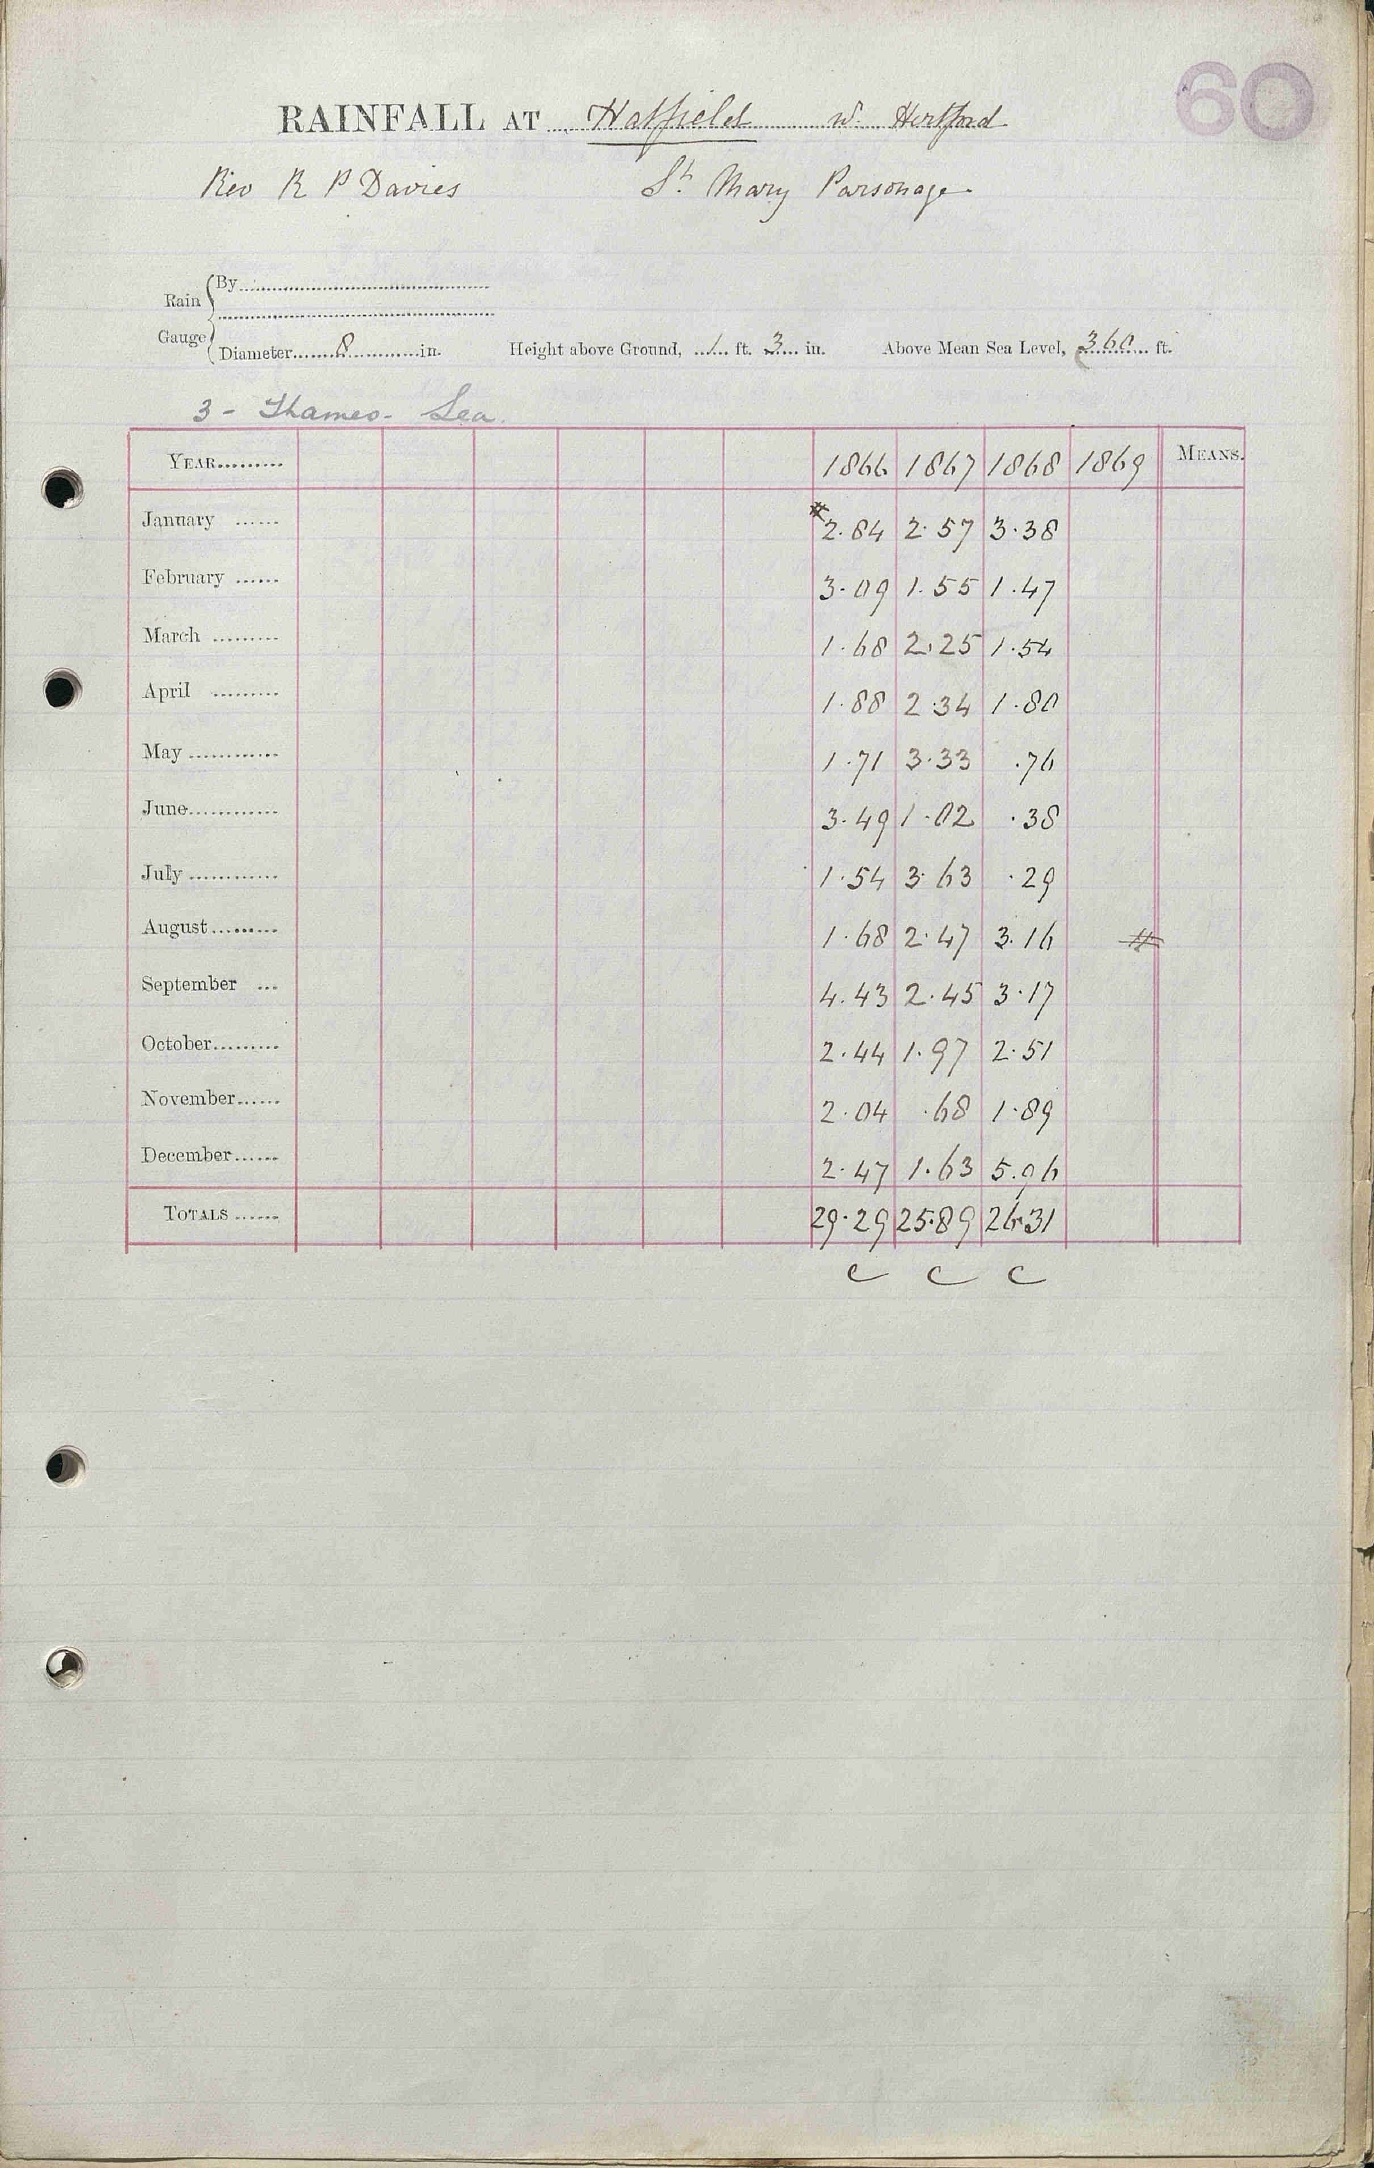 60
RAINFALL AT Hatfield W. Hertford
Rev R P Davies St. Mary Parsonage
Rain Gauge
By
Diameter 8 in. Height above Ground, 1 ft. 3 in. Above Mean Sea Level, 360 ft.
3 - Thames - Lea.
YEAR 1866 1867 1868 1869 MEANS.
January #2.84 2.57 3.38
February 3.09 1.55 1.47
March 1.68 2.25 1.54
April 1.88 2.34 1.80
May 1.71 3.33 .76
June 3.49 1.02 .38
July 1.54 3.63 .29
August 1.68 2.47 3.16 #
September 4.43 2.45 3.17
October 2.44 1.97 2.51
November 2.04 .68 1.89
December 2.47 1.63 5.96
TOTALS 29.29 25.89 26.31
c c c